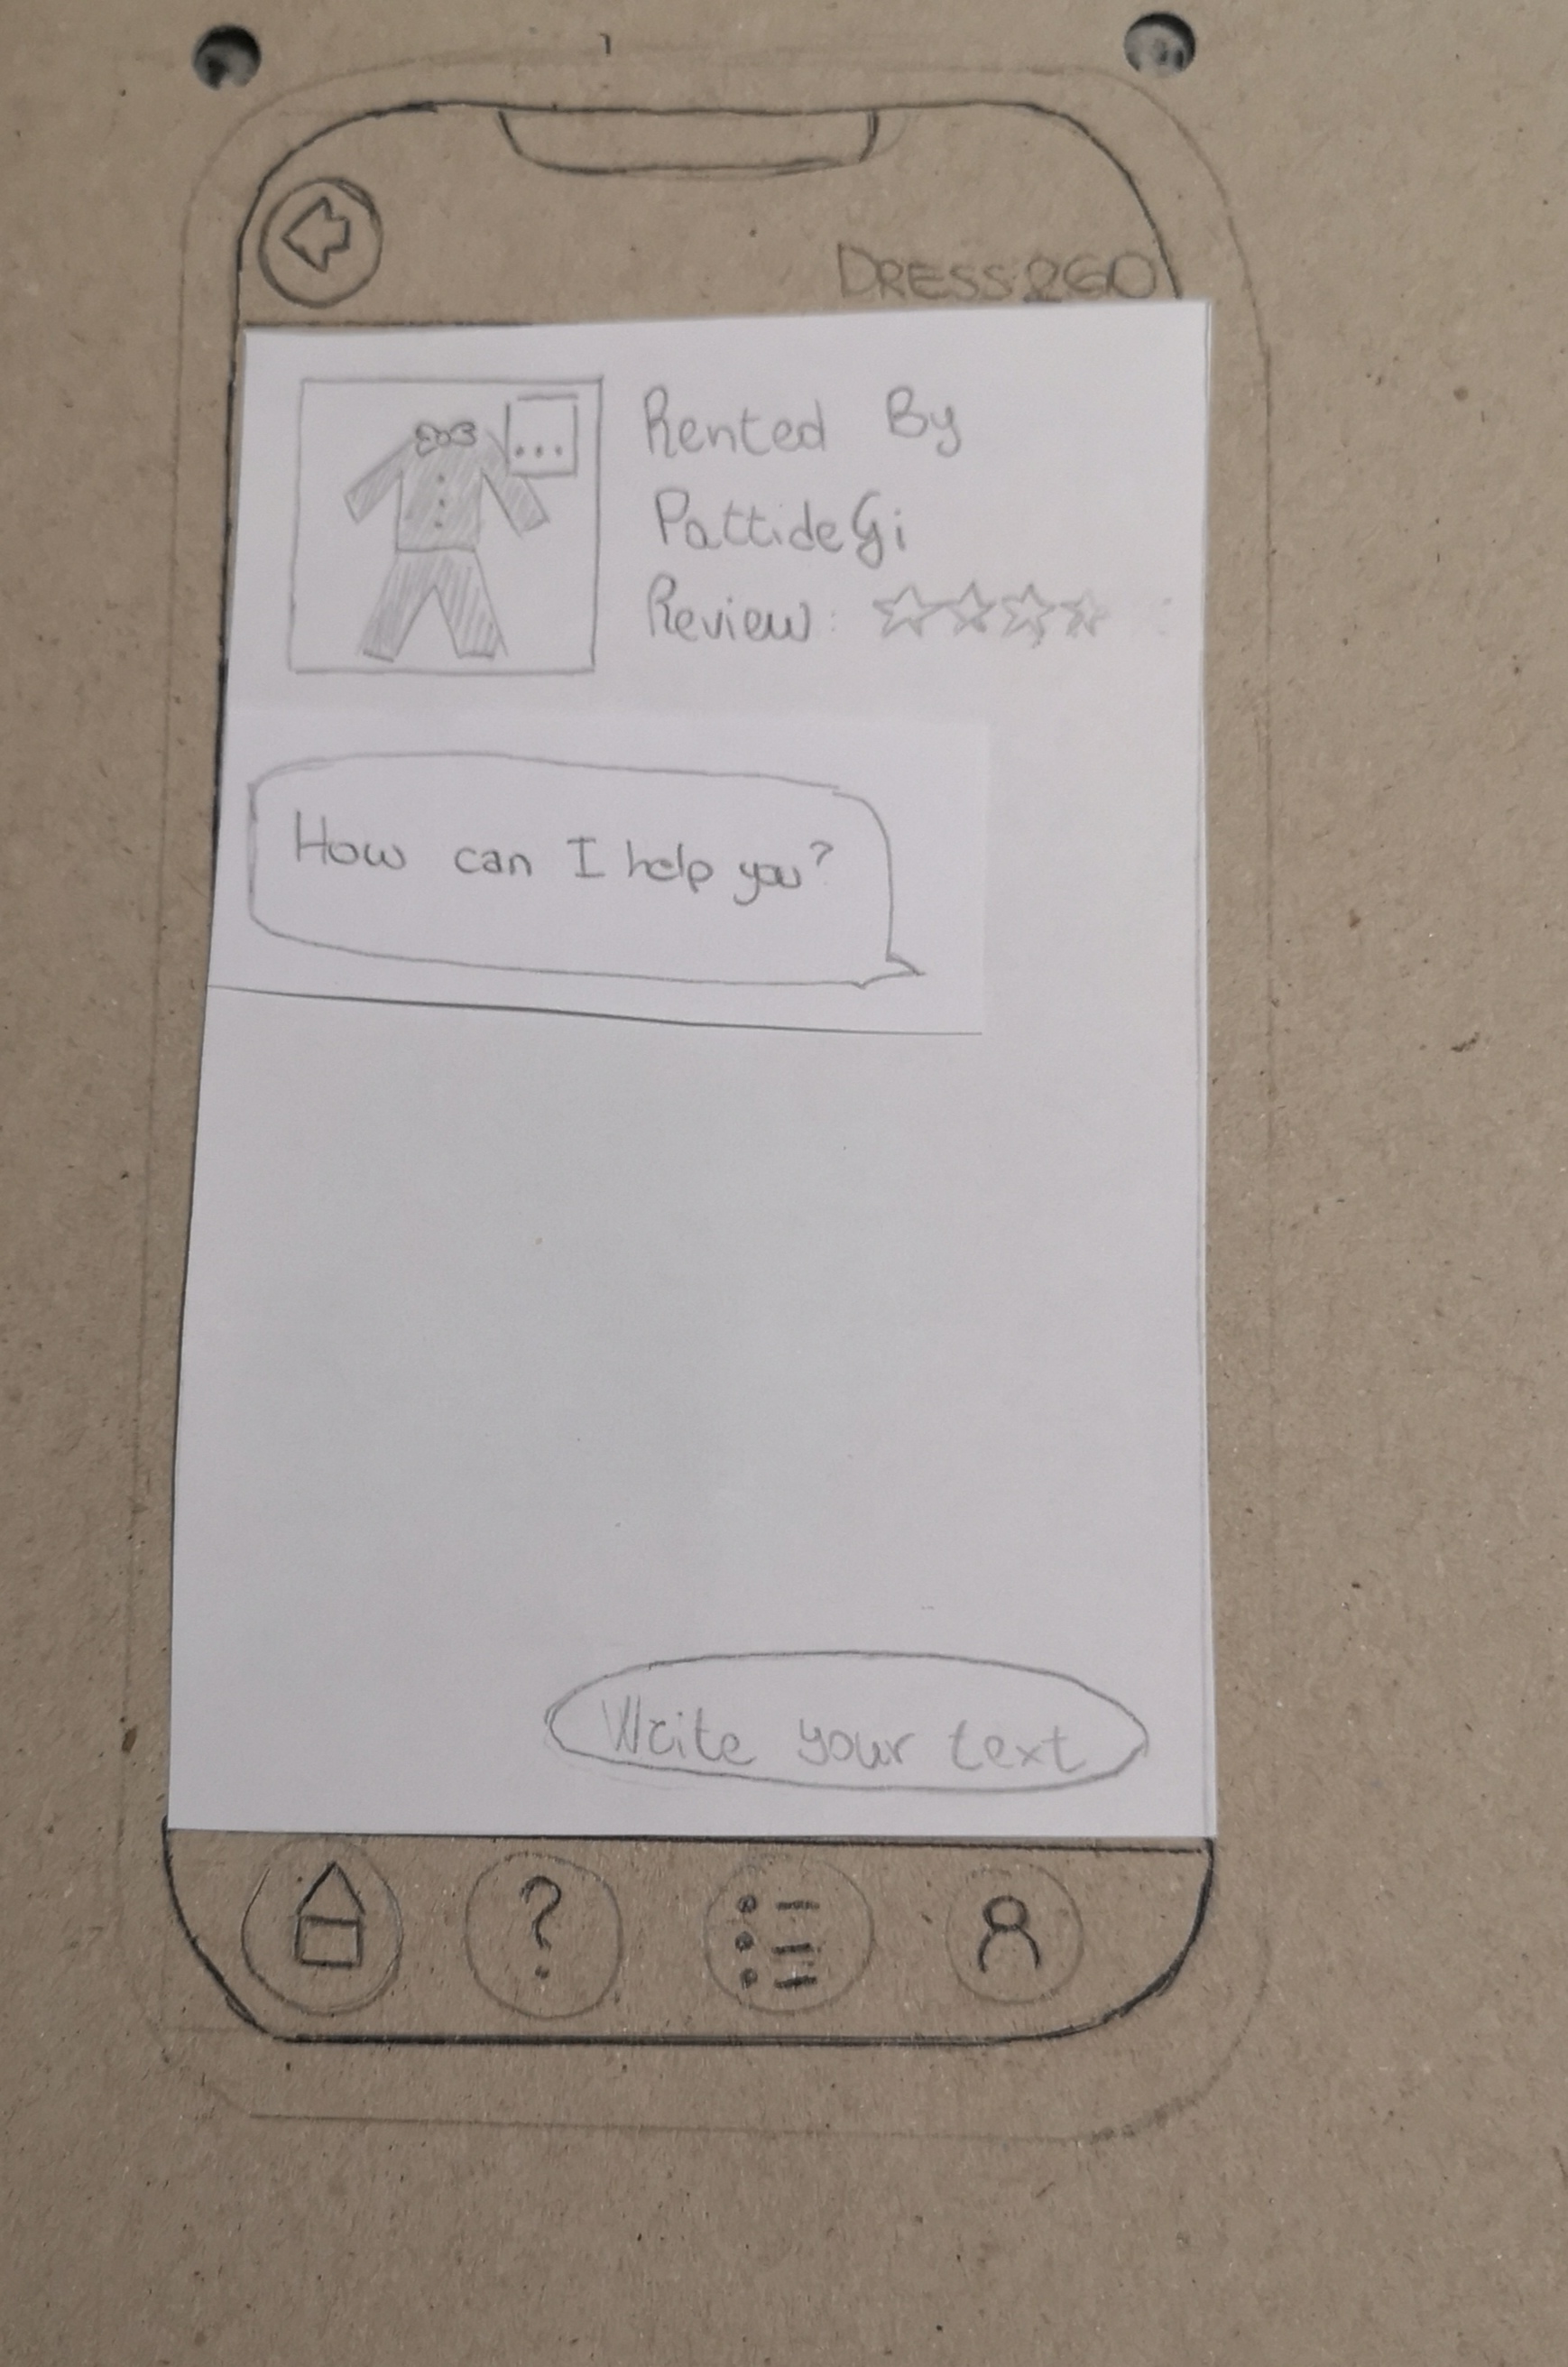 DRESS2GO
...
Rented By
PattideGi
Review:
How can I help you?
Write your text
?